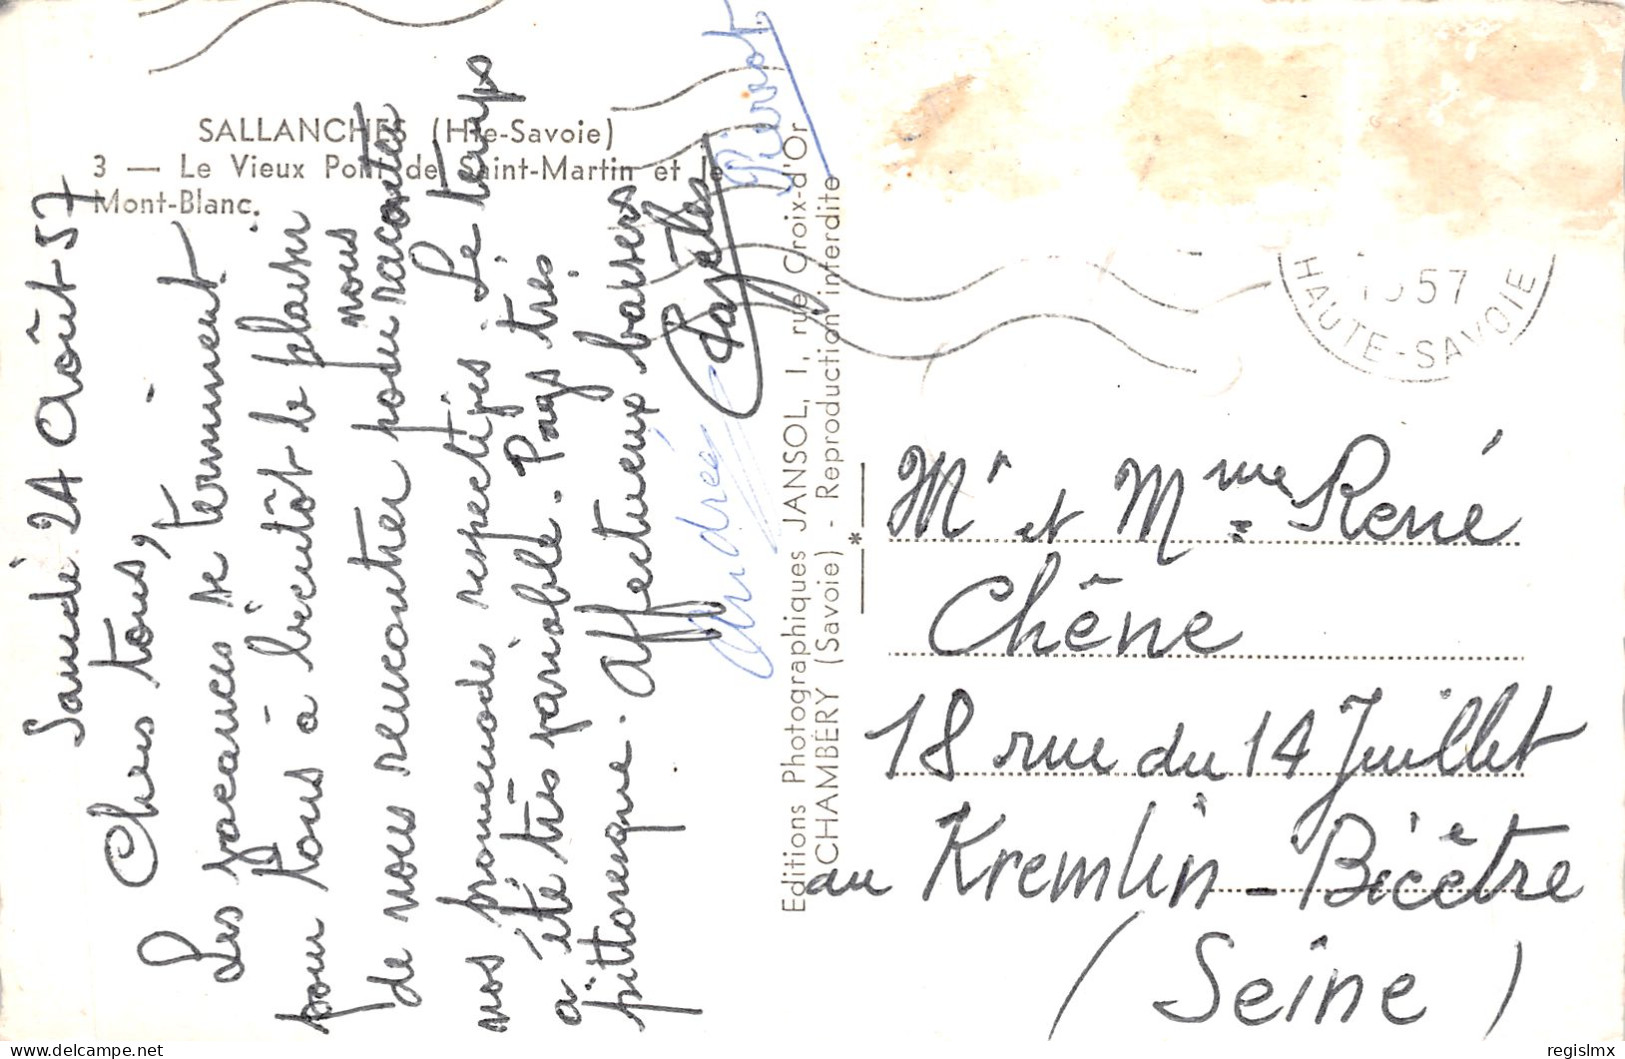 SALLANCHES (Hte-Savoie)
3 — Le Vieux Pont de Saint-Martin et le
Mont-Blanc.
Samedi 24 Août 57
Chers tous,
Les vacances se terminent
pour tous à bientôt le plaisir
de nous rencontrer pour nous raconter
nos promenades respectives. Le temps
a été très variable. Pays très
pittoresque. Affectueux baisers
André
Pierrot
Editions Photographiques JANSOL, 1, rue Croix-d'Or
CHAMBÉRY (Savoie) - Reproduction interdite
*
1957
HAUTE-SAVOIE
Mr et Mme René
Chêne
18 rue du 14 Juillet
au Kremlin-Bicêtre
(Seine)
regislmx